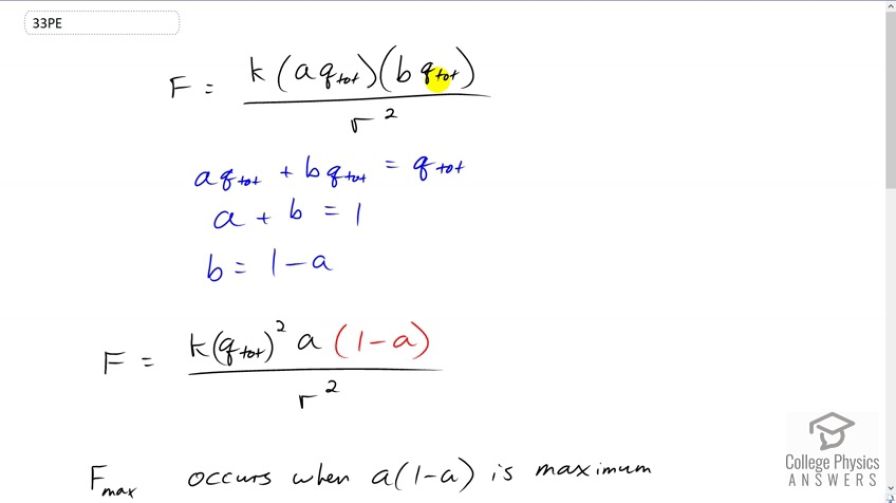 33PE
F = k(a qtot)(b qtot) / r²
a qtot + b qtot = qtot
a + b = 1
b = 1 − a
F = k(qtot)² a (1 − a) / r²
Fmax occurs when a(1−a) is maximum
College Physics
ANSWERS